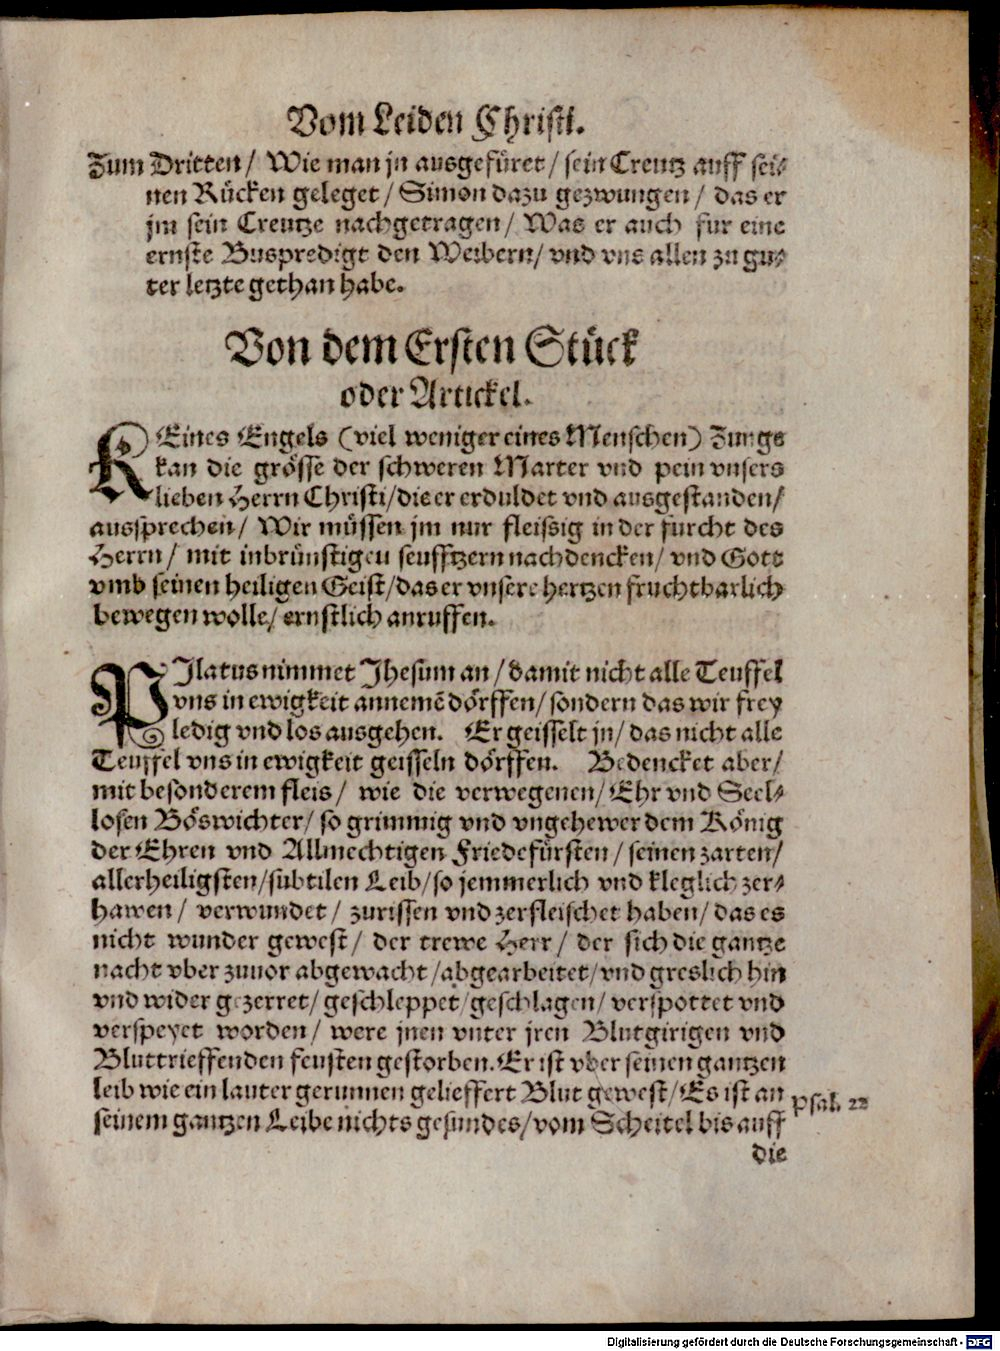 Vom Leiden Christi.
Zum Dritten / Wie man jn ausgefüret / sein Creutz auff sei⸗
nen Rücken geleget / Simon dazu gezwungen / das er
jm sein Creutze nachgetragen / Was er auch fur eine
ernste Buspredigt den Weibern / vnd vns allen zu gu⸗
ter letzte gethan habe.
Von dem Ersten Stück
oder Artickel.
KEines Engels (viel weniger eines Menschen) Zunge
kan die grösse der schweren Marter vnd pein vnsers
lieben Herrn Christi / die er erduldet vnd ausgestanden /
aussprechen / Wir müssen jm nur fleissig in der furcht des
Herrn / mit inbrünstigen seufftzern nachdencken / vnd Gott
vmb seinen heiligen Geist / das er vnsere hertzen fruchtbarlich
bewegen wolle / ernstlich anruffen.
PIlatus nimmet Jhesum an / damit nicht alle Teuffel
vns in ewigkeit annemē dörffen / sondern das wir frey
ledig vnd los ausgehen. Er geisselt jn / das nicht alle
Teuffel vns in ewigkeit geisseln dörffen. Bedencket aber /
mit besonderem fleis / wie die verwegenen / Ehr vnd Seel⸗
losen Böswichter / so grimmig vnd vngehewer dem König
der Ehren vnd Allmechtigen Friedefürsten / seinen zarten /
allerheiligsten / subtilen Leib / so jemmerlich vnd kleglich zer⸗
hawen / verwundet / zurissen vnd zerfleischet haben / das es
nicht wunder gewest / der trewe Herr / der sich die gantze
nacht vber zuuor abgewacht / abgearbeitet / vnd greslich hin
vnd wider gezerret / geschleppet / geschlagen / verspottet vnd
verspeyet worden / were jnen vnter jren Blutgirigen vnd
Bluttrieffenden feusten gestorben. Er ist vber seinen gantzen
leib wie ein lauter gerunnen gelieffert Blut gewest / Es ist an
Psal. 22
seinem gantzen Leibe nichts gesundes / vom Scheitel bis auff
die
Digitalisierung gefördert durch die Deutsche Forschungsgemeinschaft - DFG